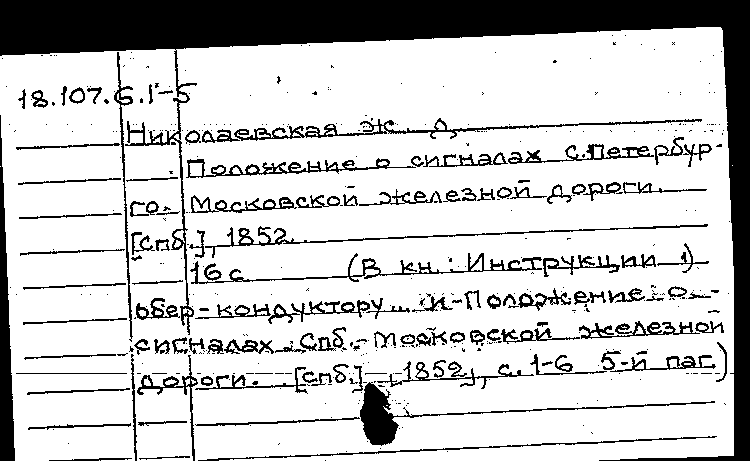 18.107.6.1-5
Николаевская ж. д.
Положение о сигналах С.Петербур-
го. Московской железной дороги.
[Спб.], 1852.
16 с (В кн.: Инструкции 1)
обер-кондуктору... и Положение о
сигналах Спб.-Московской железной
дороги. [Спб.], 1852, с. 1-6 5-й паг.)